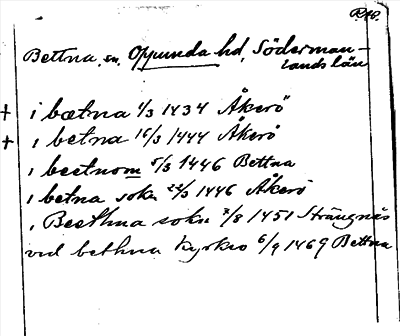 R.A.
Bettna, sn, Oppunda hd, Söderman-
lands län
+ i bætna 4/3 1434 Åkerö
+ i betna 16/3 1444 Åkerö
i beetnom 5/3 1446 Bettna
i betna sokn 22/3 1446 Åkerö
i Beethna sokn 7/8 1451 Strängnäs
vid bethna kyrkio 6/9 1469 Bettna